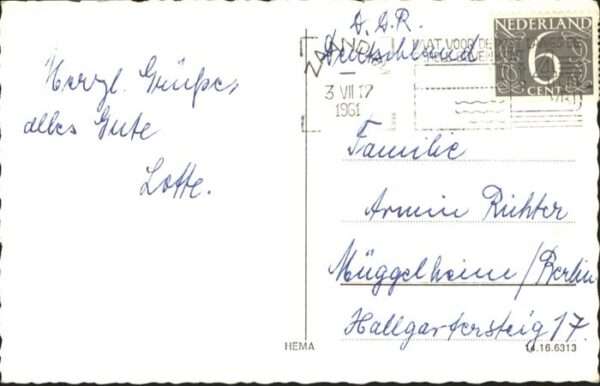 Herzl. Grüße,
alles Gute
Lotte.
D.D.R.
Deutschland
NEDERLAND
6
CENT
ZAANDAM
3 VII 17
1961
Familie
Armin Richter
Müggelheim/Berlin
Hallgartersteig 17.
HEMA
14.16.6313